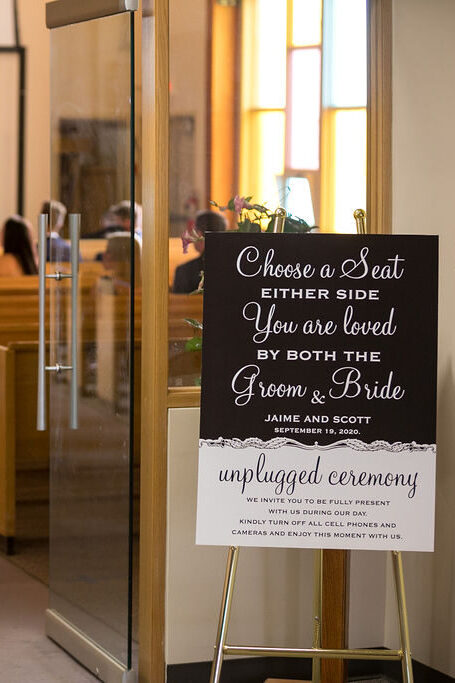 Choose a Seat
EITHER SIDE
You are loved
BY BOTH THE
Groom & Bride
JAIME AND SCOTT
SEPTEMBER 19, 2020.
unplugged ceremony
WE INVITE YOU TO BE FULLY PRESENT
WITH US DURING OUR DAY.
KINDLY TURN OFF ALL CELL PHONES AND
CAMERAS AND ENJOY THIS MOMENT WITH US.